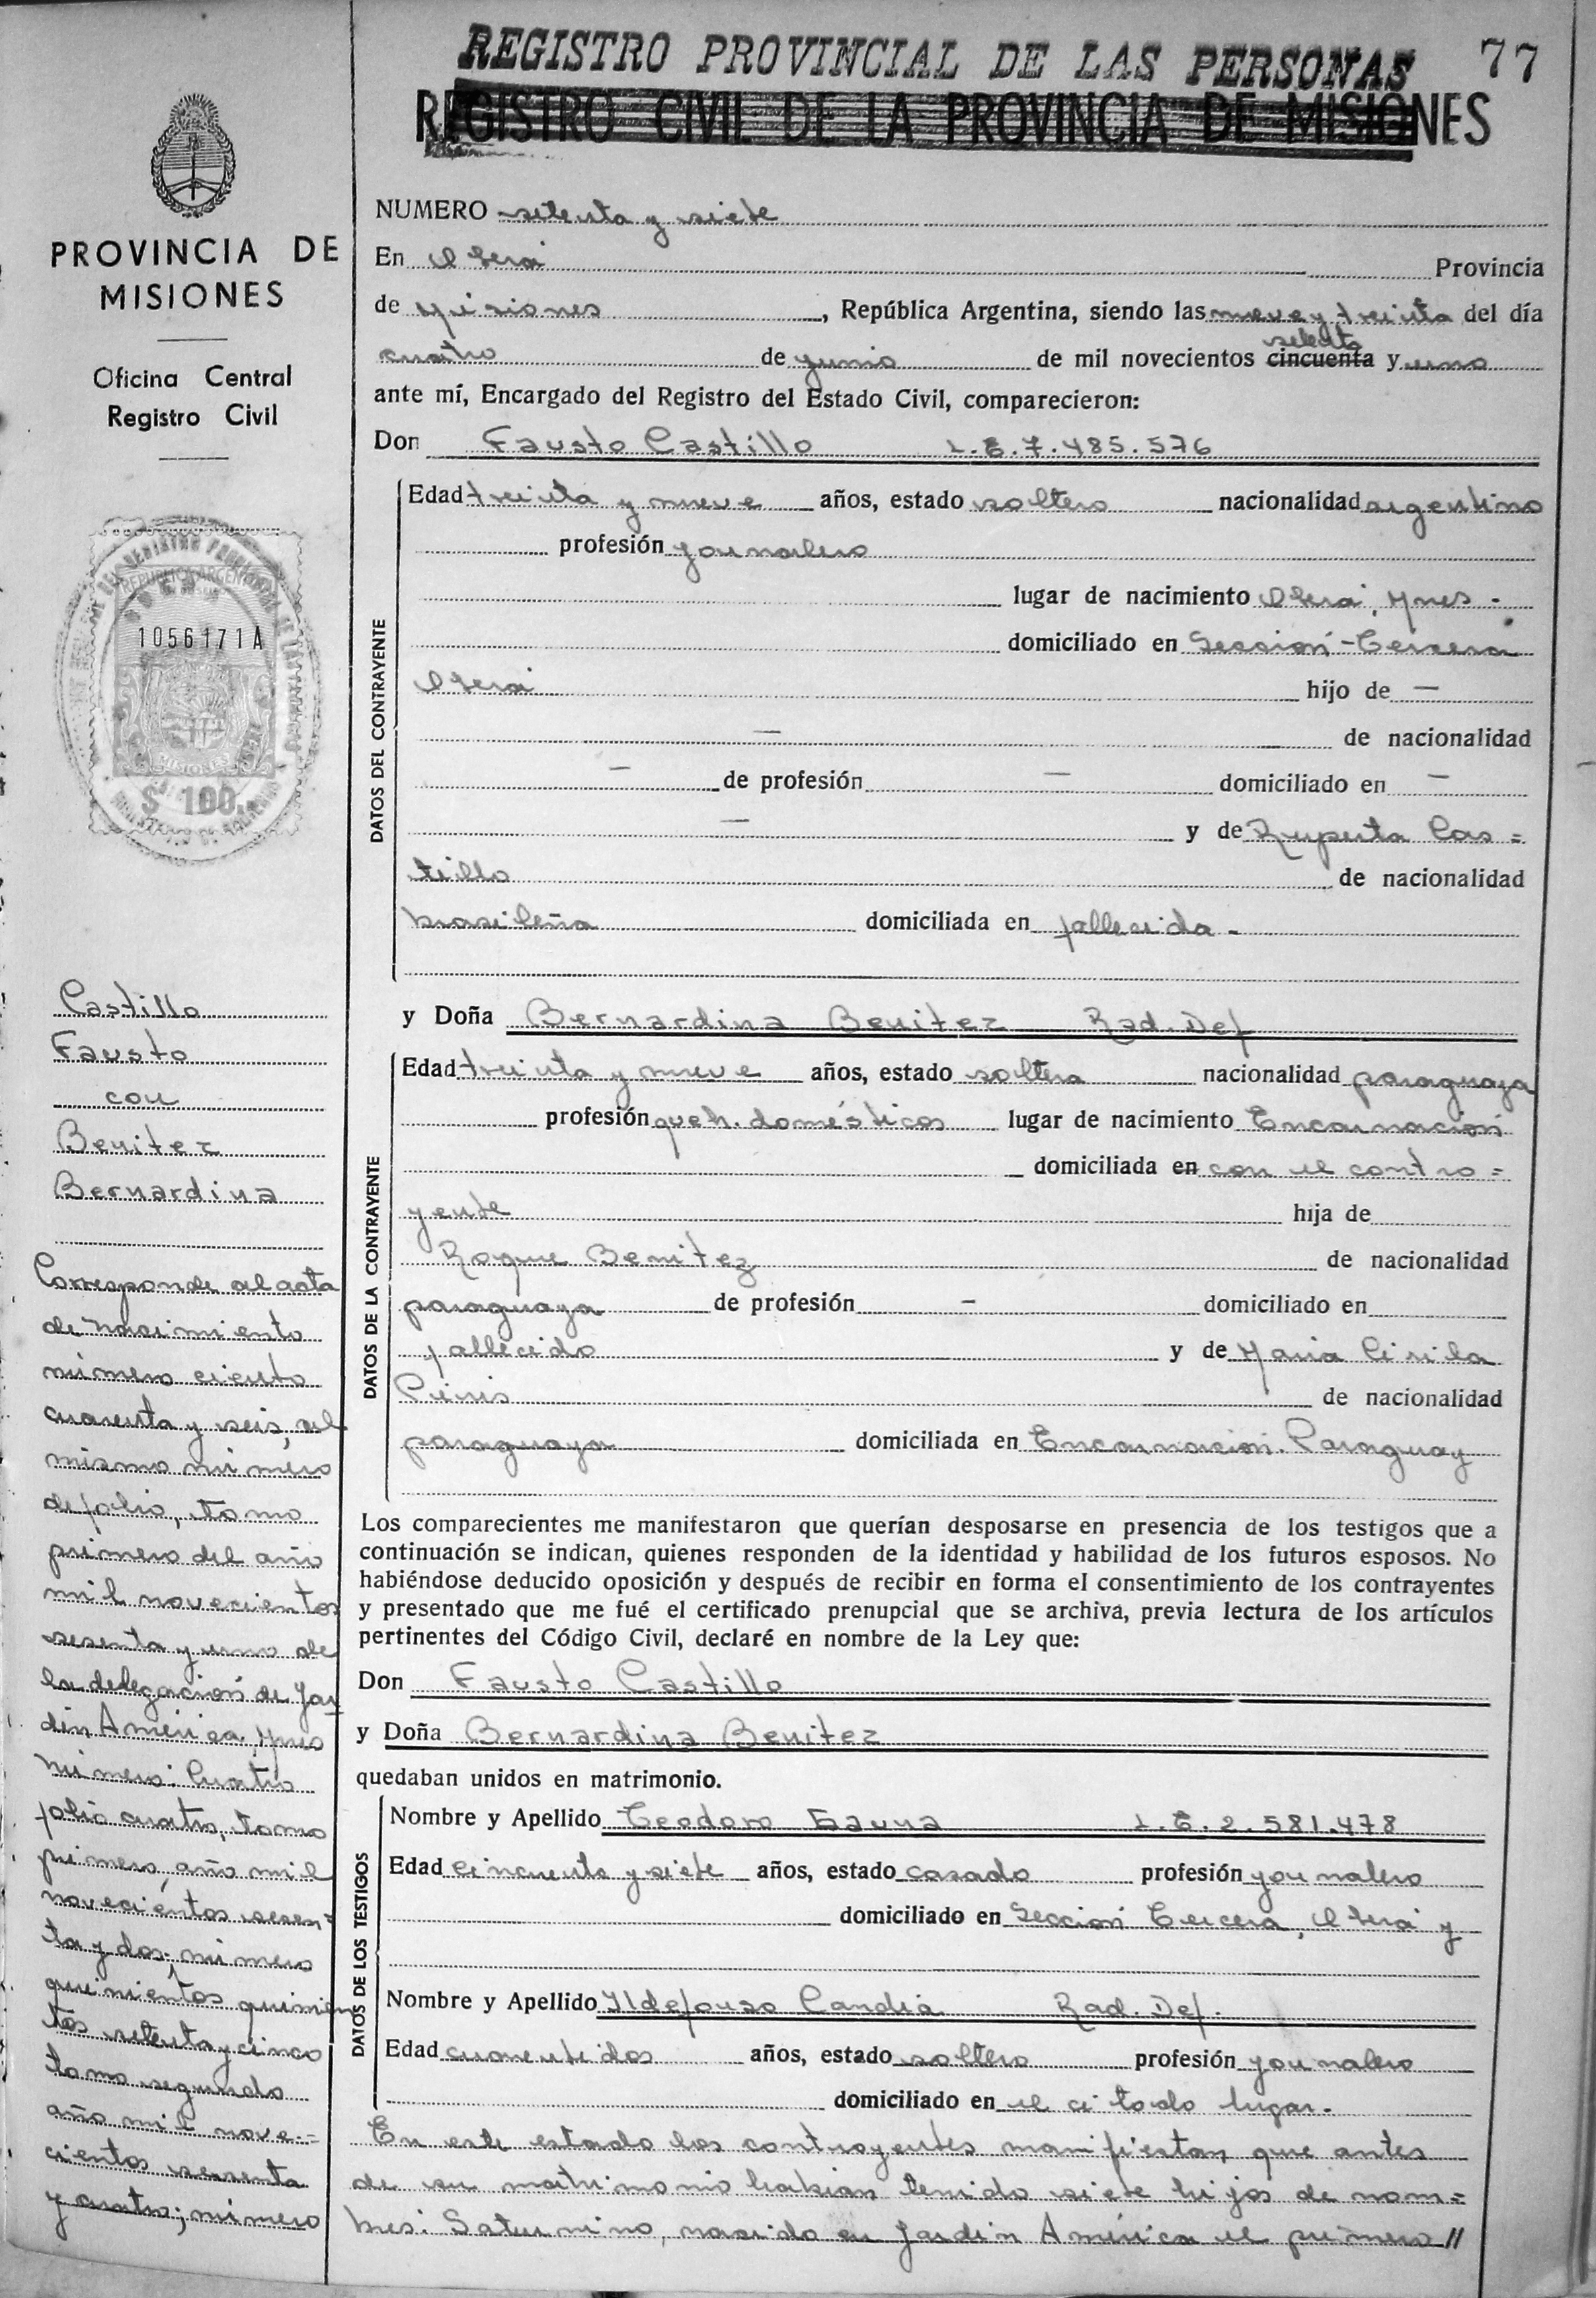 REGISTRO PROVINCIAL DE LAS PERSONAS 77
REGISTRO CIVIL DE LA PROVINCIA DE MISIONES
PROVINCIA DE
MISIONES
Oficina Central
Registro Civil
REPUBLICA ARGENTINA
1056171A
MISIONES
$ 100.
Castillo
Fausto
con
Benitez
Bernardina
Corresponde al acta
de nacimiento
número ciento
cuarenta y seis, al
mismo número
de folio, tomo
primero del año
mil novecientos
sesenta y uno de
la delegación de Jar
dín América, Mnes
número: Cuatro
folio cuatro, tomo
primero, año mil
novecientos sesen=
ta y dos; número
quinientos quinien
tos setenta y cinco
tomo segundo
año mil nove=
cientos sesenta
y cuatro; número
NUMERO setenta y siete
En Oberá Provincia
de Misiones, República Argentina, siendo las nueve y treinta del día
setenta
cuatro de junio de mil novecientos cincuenta y uno
ante mí, Encargado del Registro del Estado Civil, comparecieron:
Don Fausto Castillo L.E.7.485.576
DATOS DEL CONTRAYENTE
Edad treinta y nueve años, estado soltero nacionalidad argentino
profesión jornalero
lugar de nacimiento Oberá, Mnes -
domiciliado en Sección-Tercera
Oberá hijo de —
— de nacionalidad
— de profesión — domiciliado en —
— y de Ruperta Cas=
tillo de nacionalidad
brasileña domiciliada en fallecida -
y Doña Bernardina Benitez Rad. Def
DATOS DE LA CONTRAYENTE
Edad treinta y nueve años, estado soltera nacionalidad paraguaya
profesión queh. domésticos lugar de nacimiento Encarnación
domiciliada en con el contra=
yente hija de
Roque Benitez de nacionalidad
paraguaya de profesión - domiciliado en
fallecido y de María Cirila
de nacionalidad
paraguaya domiciliada en Encarnación. Paraguay
Los comparecientes me manifestaron que querían desposarse en presencia de los testigos que a
continuación se indican, quienes responden de la identidad y habilidad de los futuros esposos. No
habiéndose deducido oposición y después de recibir en forma el consentimiento de los contrayentes
y presentado que me fué el certificado prenupcial que se archiva, previa lectura de los artículos
pertinentes del Código Civil, declaré en nombre de la Ley que:
Don Fausto Castillo
y Doña Bernardina Benitez
quedaban unidos en matrimonio.
DATOS DE LOS TESTIGOS
Nombre y Apellido Teodoro Gauna L.E.2.581.478
Edad cincuenta y siete años, estado casado profesión jornalero
domiciliado en Sección Tercera, Oberá y
Nombre y Apellido Ildefonso Candia Rad. Def.
Edad cuarentidos años, estado soltero profesión jornalero
domiciliado en el citado lugar.
En este estado los contrayentes manifiestan que antes
de su matrimonio habían tenido siete hijos de nom=
bres: Saturnino, nacido en Jardín América el primero //